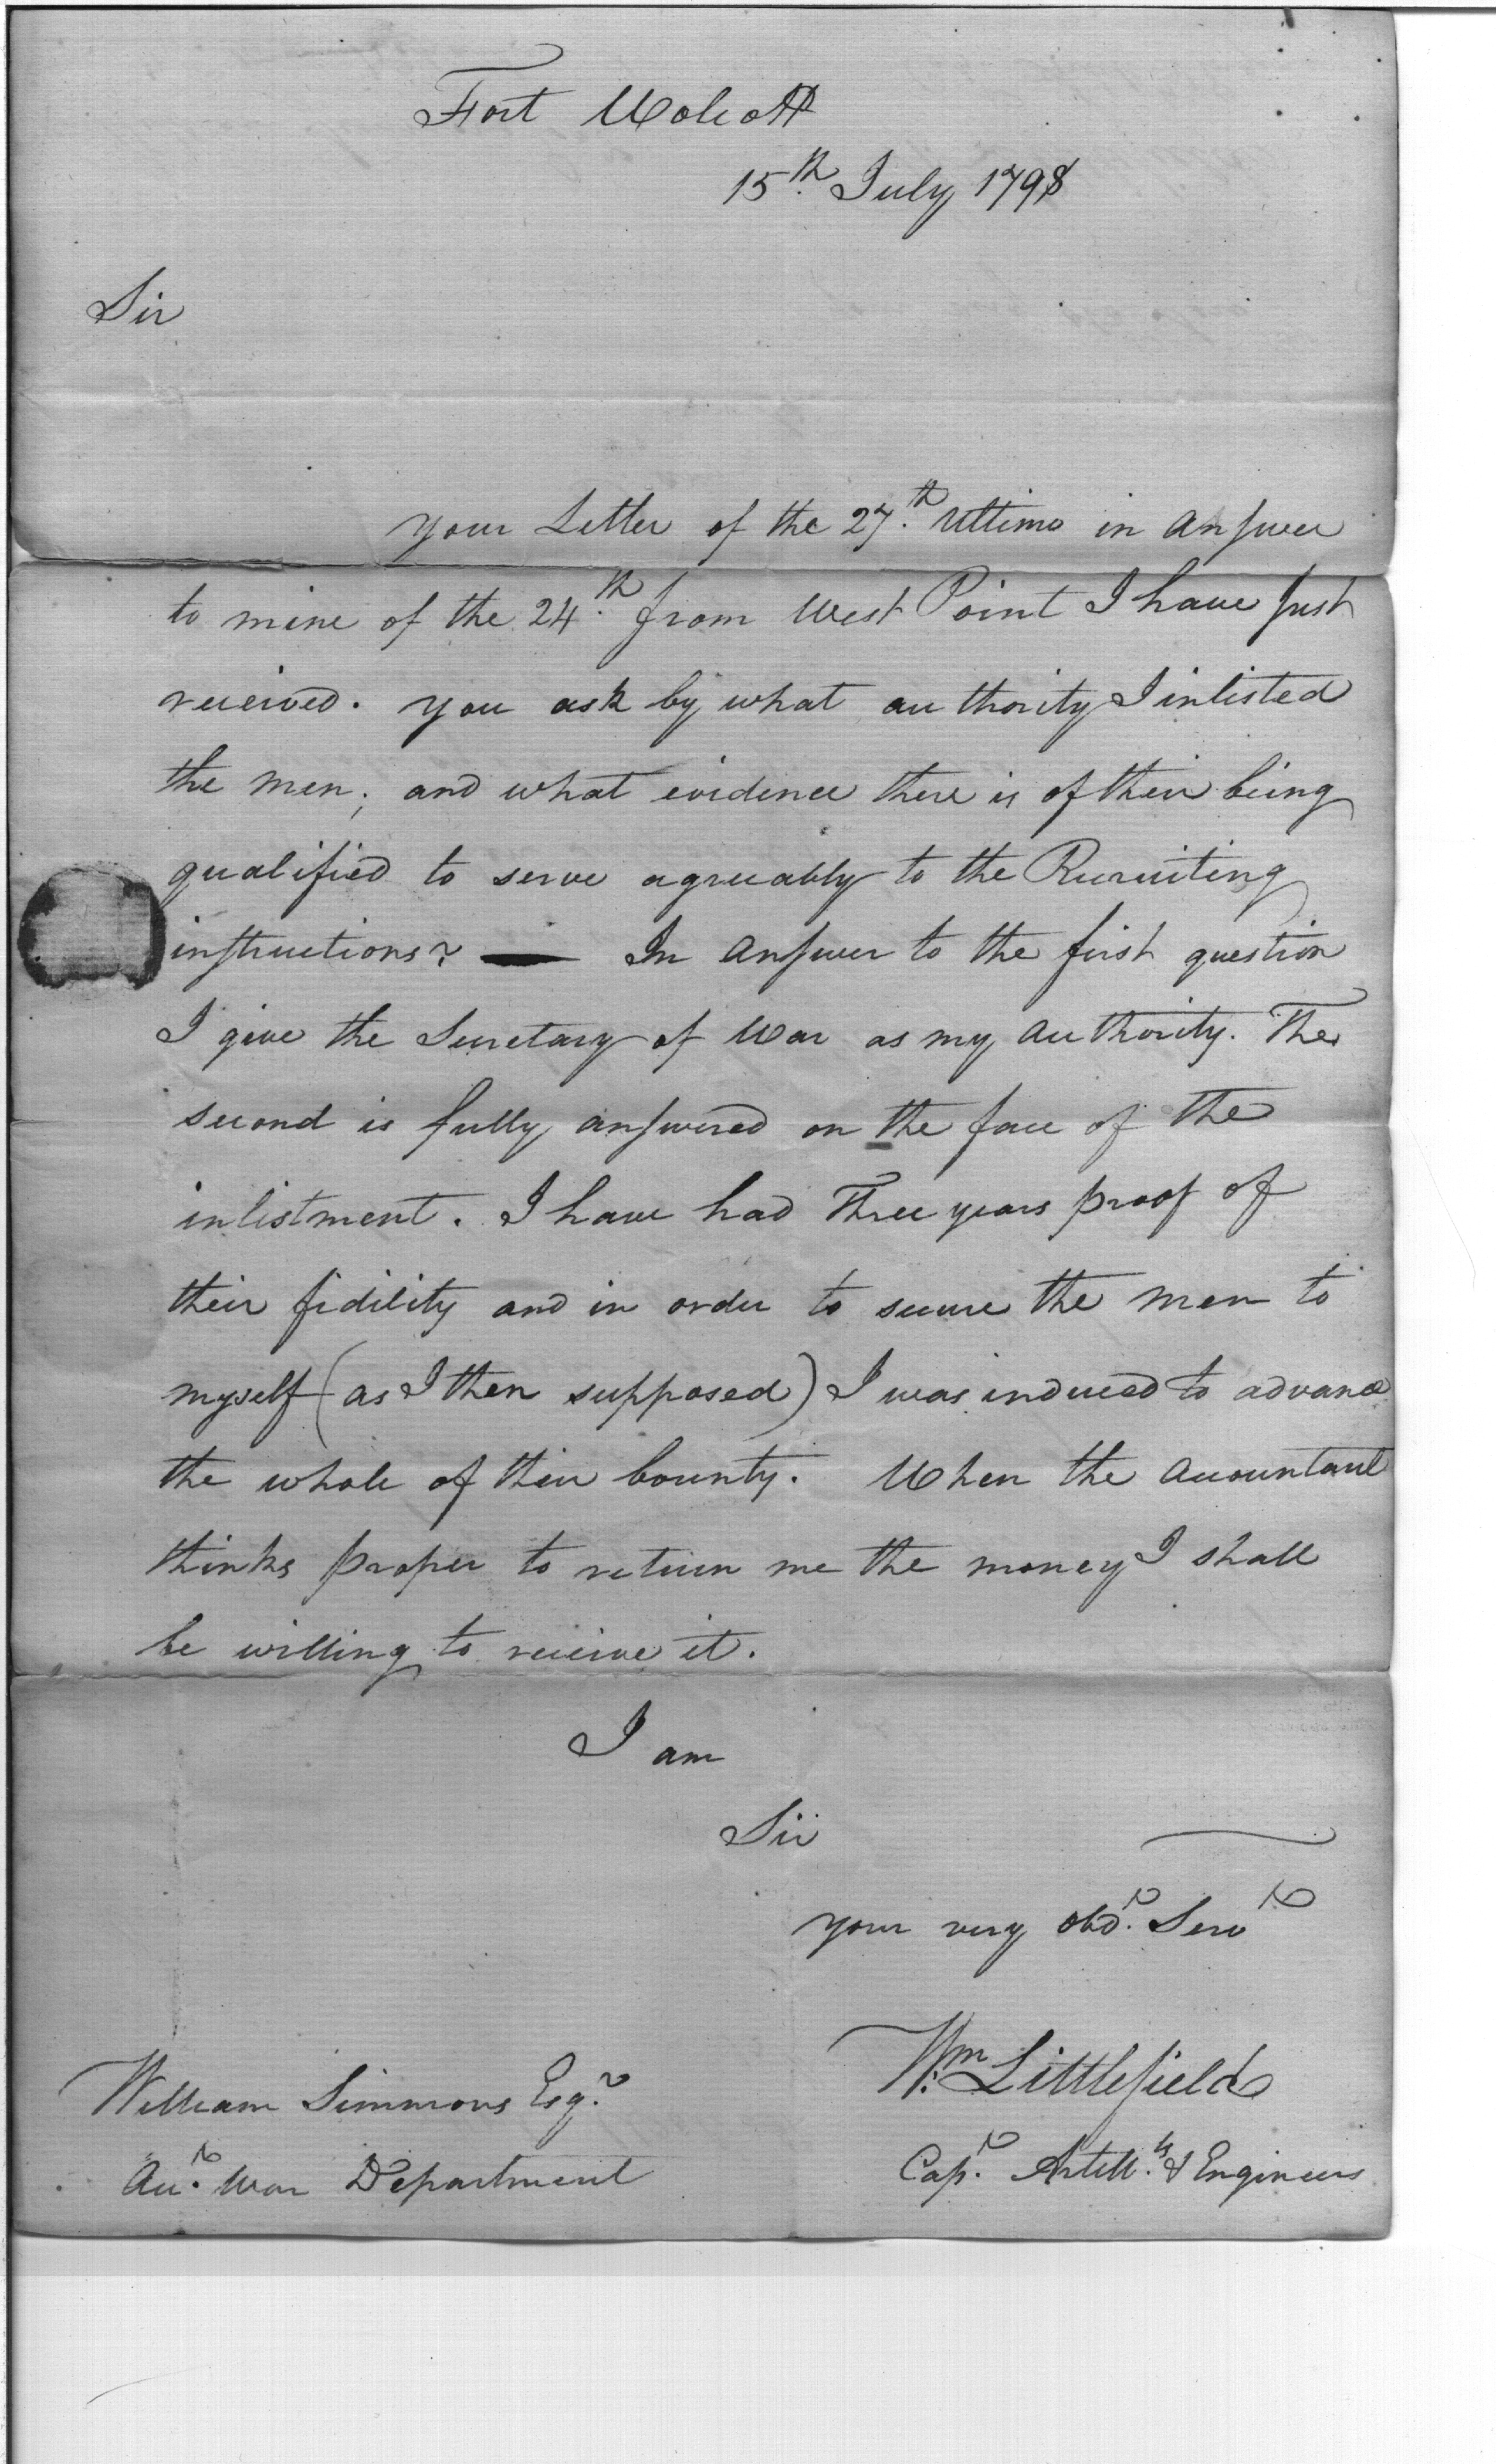 Fort Wolcott
15th July 1798
Sir
your Letter of the 27th Ultimo in answer
to mine of the 24th from West Point I have just
received. you ask by what authority I inlisted
the men; and what evidence there is of their being
qualified to serve agreeably to the Recruiting
instructions? — In answer to the first question
I give the Secretary of War as my authority. The
second is fully answered on the face of the
inlistment. I have had Three years proof of
their fidility and in order to secure the men to
myself (as I then supposed) I was induced to advance
the whole of their bounty. When the accountant
thinks proper to return me the money I shall
be willing to receive it.
I am
Sir
your very obdt. Servt
Wm Littlefield
Capt. Artills. & Engineers
William Simmons Esqr.
Acct. War Department